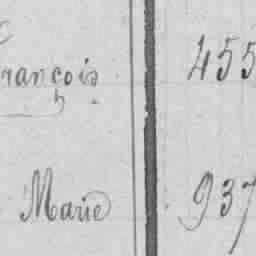 rançois 455
Marie 937